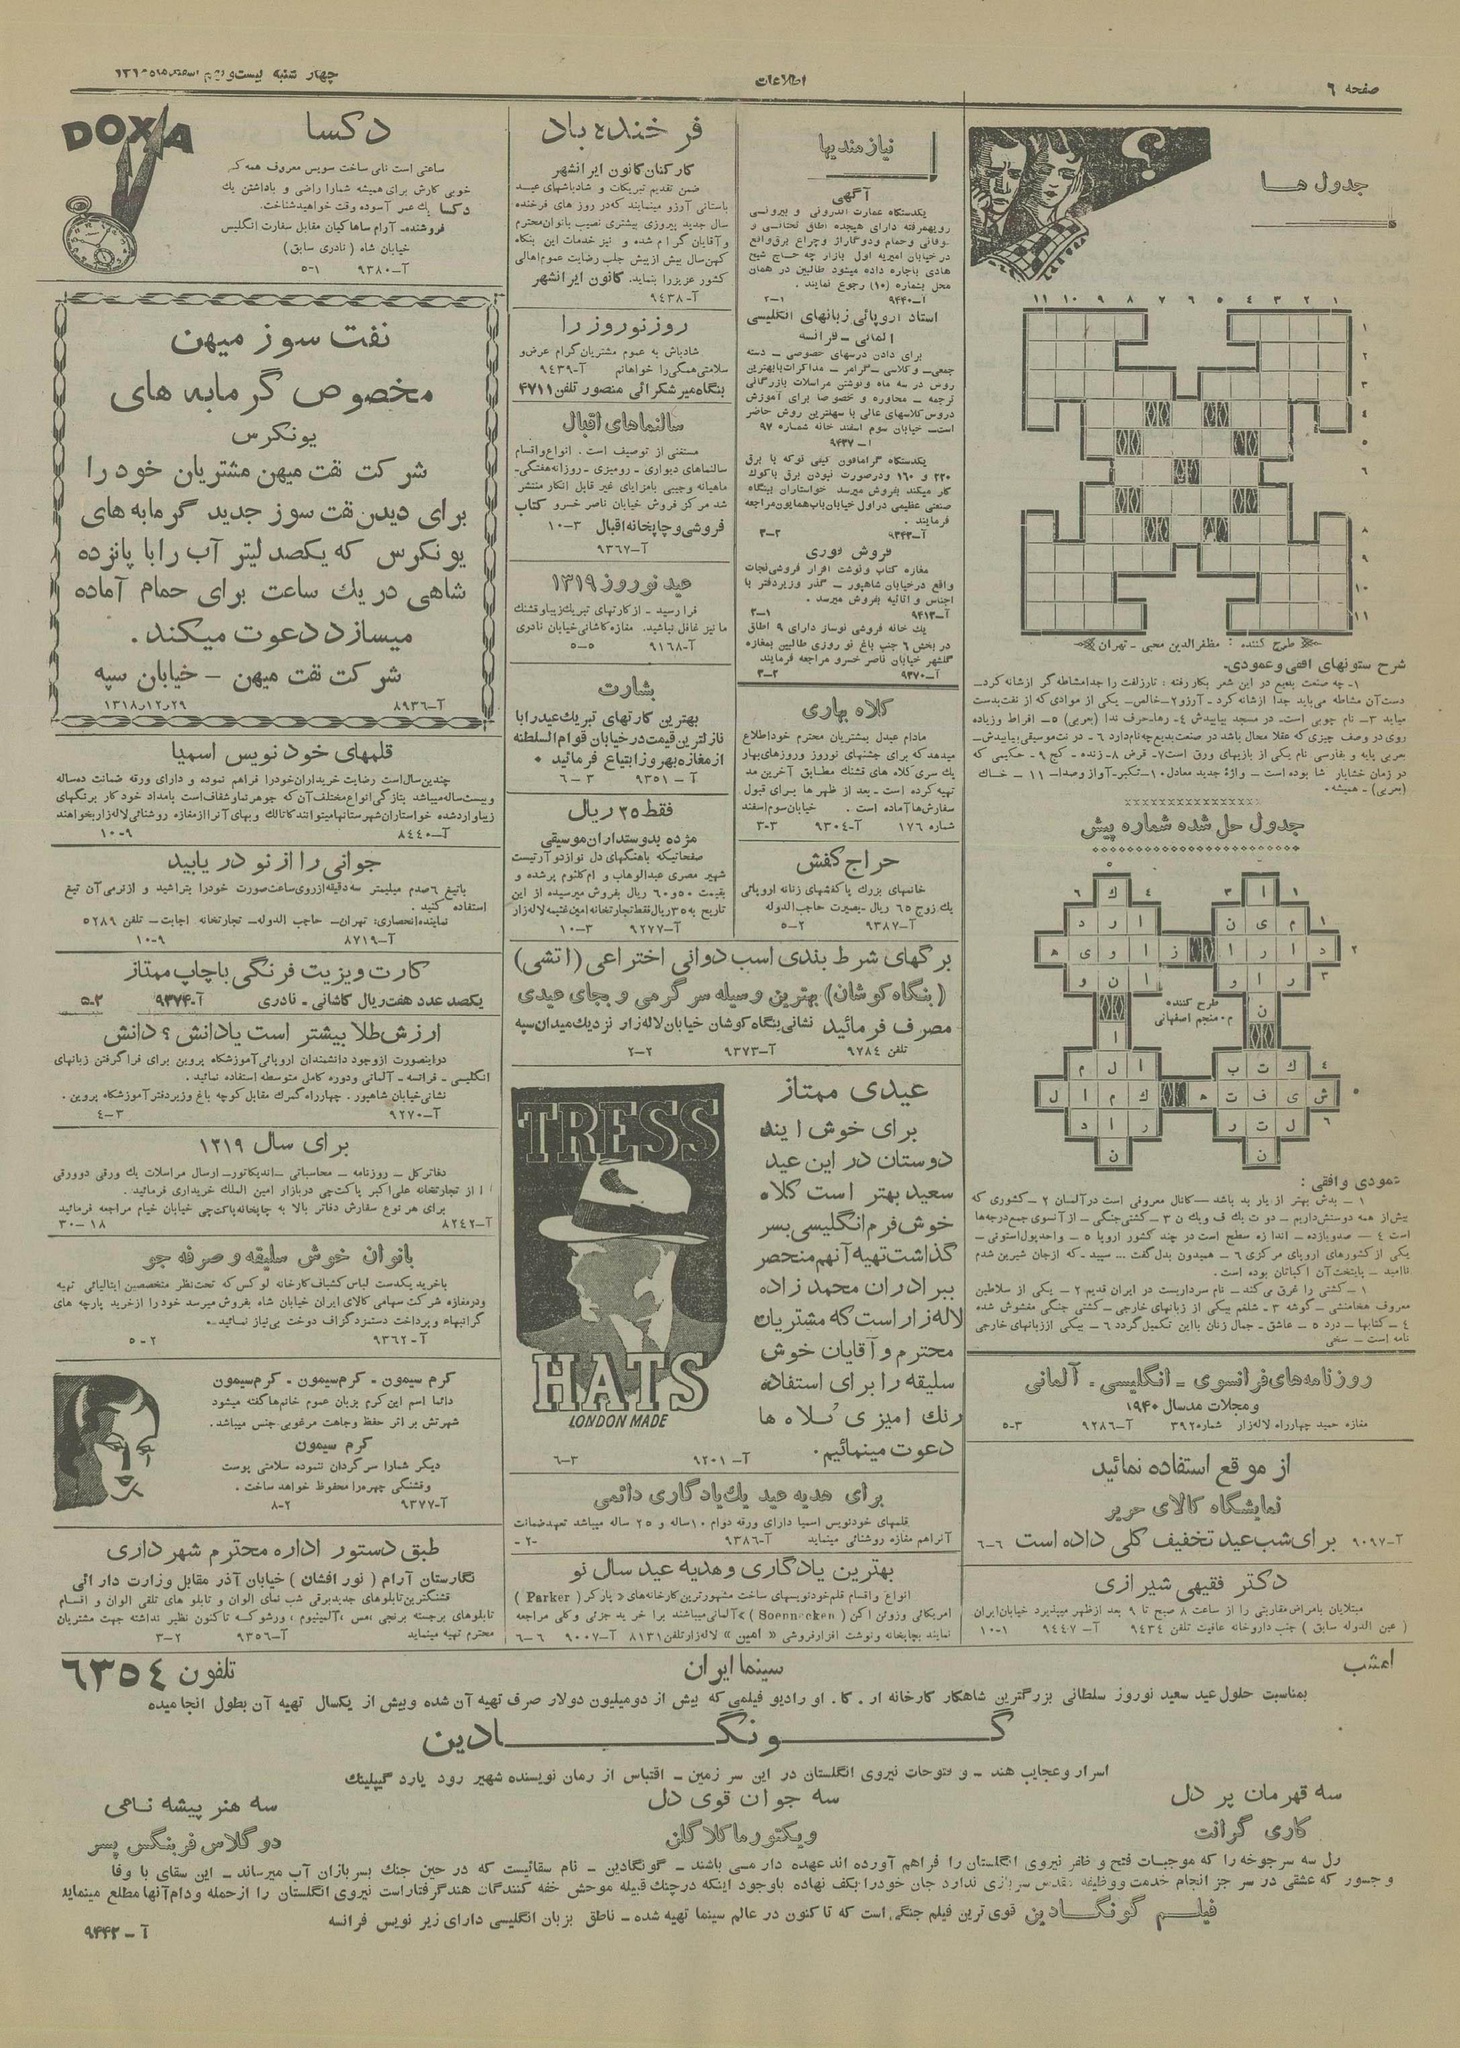 صفحه ٦
اطلاعات
جدول ها
۱ ۲ ۳ ٤ ٥ ٦ ۷ ۸ ۹ ۱۰ ۱۱
طرح کننده : مظفرالدین محبی - تهران
شرح ستونهای افقی وعمودی.
۱- چه صنعت بدیع در این شعر بکار رفته : تارزلفت را جدامشاطه گر ازشانه کرد-
دست آن مشاطه می‌باید جدا ازشانه کرد - آرزو ۲- خالص- یکی از موادی که از نفت بدست
میاید ۳- نام چوبی است- در مسجد بیابیدش ٤- رها-حرف ندا (بعربی) ٥- افراط وزیاده
روی در وصف چیزی که عقلا محال باشد در صنعت بدیع چه نام دارد ٦- در نت موسیقی بیابیدش-
بعربی پایه و بفارسی نام یکی از بازیهای ورق است ۷- قرض ۸- زنده - کج ۹- حکیمی که
در زمان خشایار شا بوده است - واژهٔ جدید معادل ۱۰- تکبر- آواز وصدا- ۱۱ - خاک
(بعربی) - همیشه.
جدول حل شده شماره پیش
طرح کننده
م. منجم اصفهانی
عمودی وافقی :
۱ - بدش بهتر از یار بد باشد - کانال معروفی است در آلمان ۲ - کشوری که
بیش از همه دوستش داریم - دو ت یک ف ویک ن ۳ - کشتی جنگی - از آنسوی جمع درجه‌ها
است ٤ - صدویازده - اندازه سطح است در چند کشور اروپا ٥ - واحد پول استونی -
یکی از کشورهای اروپای مرکزی ٦ - همیدون بدل گفت ... سپید- که ازجان شیرین شدم
ناامید - پایتخت آن اکباتان بوده است .
۱ - کشتی را غرق می کند - نام سرداریست در ایران قدیم ۲ - یکی از سلاطین
معروف هخامنشی - گوشه ۳ - شلغم بیکی از زبانهای خارجی - کشتی جنگی مغشوش شده
٤ - کتابها - درد ٥ - عاشق - جمال زنان بااین تکمیل گردد ٦ - بیکی اززبانهای خارجی
نامه است - سخی
روزنامه‌های فرانسوی - انگلیسی - آلمانی
ومجلات مدسال ۱۹٤۰
مغازه حمید چهارراه لاله زار شماره ۳۹۲ آ-۹۲۸٦ ۳-٥
از موقع استفاده نمائید
نمایشگاه کالای حریر
برای شب عید تخفیف کلی داده است
آ-۹۰۹۷ ٦-٦
دکتر فقیهی شیرازی
مبتلایان بامراض مقاربتی را از ساعت ۸ صبح تا ۹ بعد ازظهر میپذیرد خیابان ایران
( عین الدوله سابق ) جنب داروخانه عافیت تلفن ۹٤۳٤ آ- ۹٤٤۷ ۱-۱۰
نیازمندیها
آگهی
یکدستگاه عمارت اندرونی و بیرونی
رویهمرفته دارای هیجده اطاق تحتانی و
فوقانی وحمام ودوگاراژ وچراغ برق واقع
در خیابان امیریه اول بازار چه حاج شیخ
هادی باجاره داده میشود طالبین در همان
محل بشماره (۱۰) رجوع نمایند .
آ-۹٤٤۰ ۱-۲
استاد اروپائی زبانهای انگلیسی
المانی - فرانسه
برای دادن درسهای خصوصی - دسته
جمعی- وکلاسی- گرامر- مذاکرات بابهترین
روس در سه ماه ونوشتن مراسلات بازرگانی
ترجمه - محاوره و خصوصا برای آموزش
دروس کلاسهای عالی با سهلترین روش حاضر
است- خیابان سوم اسفند خانه شماره ۹۷
آ-۹٤۳۷
یکدستگاه گرامافون کیفی نوکه با برق
۲۲۰ و ۱٦۰ ودرصورت نبودن برق باکوک
کار میکند بفروش میرسد خواستاران ببنگاه
صنعتی عظیمی در اول خیابان باب همایون مراجعه
فرمایند .
آ-۹۳٤۳ ۲-۳
فروش فوری
مغازه کتاب ونوشت افزار فروشی نجات
واقع درخیابان شاهپور - گذر وزیردفتر با
اجناس و اثاثیه بفروش میرسد .
آ-۹٤۱۳ ۱-۲
یک خانه فروشی نوساز دارای ۹ اطاق
در بخش ٦ جنب باغ نو روزی طالبین بمغازه
گلشهر خیابان ناصر خسرو مراجعه فرمایند
آ-۹۳۷۰ ۲-۳
کلاه بهاری
مادام عبدل بمشتریان محترم خوداطلاع
میدهد که برای جشنهای نوروز وروزهای بهار
یک سری کلاه های قشنک مطابق آخرین مد
تهیه کرده است - بعد از ظهر ها برای قبول
سفارش‌ها آماده است . خیابان سوم اسفند
شماره ۱۷٦ آ-۹۳۰٤ ۳-۳
حراج کفش
خانمهای بزرگ پا کفشهای زنانه اروپائی
یک زوج ٦٥ ریال - بصیرت حاجب الدوله
آ-۹۳۸۷ ۲-٥
فرخنده باد
کارکنان کانون ایرانشهر
ضمن تقدیم تبریکات و شادباشهای عید
باستانی آرزو مینمایند که در روز های فرخنده
سال جدید پیروزی بیشتری نصیب بانوان محترم
وآقایان گرام شده و نیز خدمات این بنگاه
کهن سال بیش ازپیش جلب رضایت عموم اهالی
کشور عزیز را بنماید. کانون ایرانشهر
آ-۹٤۳۸
روز نوروز را
شادباش به عموم مشتریان گرام عرض و
سلامتی همگی را خواهانم آ-۹٤۳۹
بنگاه میر شکرائی منصور تلفن ٤۷۱۱
سالنماهای اقبال
مستغنی از توصیف است . انواع واقسام
سالنماهای دیواری - رومیزی - روزانه هفتگی-
ماهیانه وجیبی بامزایای غیر قابل انکار منتشر
شد مرکز فروش خیابان ناصر خسرو کتاب
فروشی وچاپخانه اقبال ۳-۱۰
آ-۹۳٦۷
عید نوروز ۱۳۱۹
فرا رسید - از کارتهای تبریک زیبا و قشنک
ما نیز غافل نباشید. مغازه کاشانی خیابان نادری
آ-۹۱٦۸ ٥-٥
بشارت
بهترین کارتهای تبریک عید رابا
نازلترین قیمت در خیابان قوام السلطنه
از مغازه بهروز ابتیاع فرمائید .
آ - ۹۳٥۱ ۳ - ٦
فقط ۳٥ ریال
مژده بدوستداران موسیقی
صفحاتیکه باهنگهای دل نواز دو آرتیست
شهیر مصری عبدالوهاب و ام کلثوم پرشده و
بقیمت ٥۰ و ٦۰ ریال بفروش میرسیده از این
تاریخ به ۳٥ ریال فقط تجارتخانه امین غنیمه لاله زار
آ-۹۲۷۷ ۳-۱۰
برگهای شرط بندی اسب دوانی اختراعی (آتشی)
(بنگاه کوشان) بهترین وسیله سرگرمی و بجای عیدی
مصرف فرمائید نشانی بنگاه کوشان خیابان لاله زار نزدیک میدان سپه
تلفن ۹۷۸٤ آ-۹۳۷۳ ۲-۲
عیدی ممتاز
برای خوش آیند
دوستان در این عید
سعید بهتر است کلاه
خوش فرم انگلیسی بسر
گذاشت تهیه آنهم منحصر
ببرادران محمد زاده
لاله زار است که مشتریان
محترم و آقایان خوش
سلیقه را برای استفاده
رنک آمیزی کلاه ها
دعوت مینمائیم.
آ- ۹۲۰۱ ۳-٦
TRESS
HATS
LONDON MADE
برای هدیه عید یک یادگاری دائمی
قلمهای خودنویس اسمیا دارای ورقه دوام ۱۰ ساله و ۲٥ ساله میباشد تعهد ضمانت
آنراهم مغازه روشنائی مینماید آ-۹۳۸٦
بهترین یادگاری وهدیه عید سال نو
انواع واقسام قلم خودنویسهای ساخت مشهورترین کارخانه‌های « پارکر ( Parker )
امریکائی وزوئن اکن ( Soennecken )» آلمانی میباشند برا خرید جزئی وکلی مراجعه
نمایند بچاپخانه و نوشت افزار فروشی « امین » لاله زار تلفن ۸۱۳۱ آ-۹۰۰۷ ٦-٦
DOXA
دکسا
ساعتی است نامی ساخت سویس معروف همه که
خوبی کارش برای همیشه شمارا راضی و باداشتن یک
دکسا یک عمر آسوده وقت خواهید شناخت.
فروشنده- آرام ساهاکیان مقابل سفارت انگلیس
خیابان شاه ( نادری سابق )
آ-۹۳۸۰ ۱-٥
نفت سوز میهن
مخصوص گرمابه های
یونکرس
شرکت نفت میهن مشتریان خود را
برای دیدن نفت سوز جدید گرمابه های
یونکرس که یکصد لیتر آب را با پانزده
شاهی در یک ساعت برای حمام آماده
میسازد دعوت میکند.
شرکت نفت میهن - خیابان سپه
آ-۸۹۳٦ ۱۳۱۸ر۱۲ر۲۹
قلمهای خود نویس اسمیا
چندین سال است رضایت خریداران خودرا فراهم نموده و دارای ورقه ضمانت ده ساله
وبیست ساله میباشد بتازگی انواع مختلف آن که جوهر نما وشفاف است بامداد خود کار برنگهای
زیبا وارد شده خواستاران شهرستانها میتوانند کاتالک وبهای آنرا از مغازه روشنائی لاله زار بخواهند
آ-۸٤٤۰ ۹-۱۰
جوانی را از نو در یابید
باتیغ ٦ صدم میلیمتر سه دقیقه ازروی ساعت صورت خودرا بتراشید و ازنرمی آن تیغ
استفاده کنید .
نماینده انحصاری: تهران- حاجب الدوله- تجارتخانه اجابت- تلفن ٥۲۸۹
آ-۸۷۱۹ ۹-۱۰
کارت ویزیت فرنگی با چاپ ممتاز
یکصد عدد هفت ریال کاشانی - نادری آ-۹۳۷٤ ۲-٥
ارزش طلا بیشتر است یا دانش ؟ دانش
دراینصورت ازوجود دانشمندان اروپائی آموزشگاه پروین برای فراگرفتن زبانهای
انگلیسی - فرانسه - آلمانی ودوره کامل متوسطه استفاده نمائید .
نشانی خیابان شاهپور . چهارراه گمرک مقابل کوچه باغ وزیردفتر آموزشگاه پروین .
آ-۹۲۷۰ ۳-٤
برای سال ۱۳۱۹
دفاتر کل - روزنامه - محاسباتی - اندیکاتور- ارسال مراسلات یک ورقی دوورقی
را از تجارتخانه علی اکبر پاکت چی دربازار امین الملک خریداری فرمائید .
برای هر نوع سفارش دفاتر بالا به چاپخانه پاکت چی خیابان خیام مراجعه فرمائید
آ-۸۲٤۲ ۱۸-۳۰
بانوان خوش سلیقه و صرفه جو
باخرید یکدست لباس کشباف کارخانه لوکس که تحت نظر متخصصین ایتالیائی تهیه
ودر مغازه شرکت سهامی کالای ایران خیابان شاه بفروش میرسد خود را ازخرید پارچه های
گرانبها وپرداخت دستمزد گزاف دوخت بی نیاز نمائید.
آ-۹۳٦۲ ۲-٥
کرم سیمون - کرم سیمون - کرم سیمون
دائما اسم این کرم بزبان عموم خانم‌ها گفته میشود
شهرتش بر اثر حفظ وجاهت مرغوبی جنس میباشد.
کرم سیمون
دیگر شمارا سرگردان ننموده سلامتی پوست
وقشنگی چهره را محفوظ خواهد ساخت .
آ-۹۳۷۷ ۲-۸
طبق دستور اداره محترم شهرداری
نگارستان آرام ( نور افشان ) خیابان آذر مقابل وزیرت دارائی
قشنگترین تابلوهای جدید برقی شب نمای الوان و تابلو های تلقی الوان و اقسام
تابلوهای برجسته برنجی ،مس ،آلمینیوم ، ورشو که تاکنون نظیر نداشته جهت مشتریان
محترم تهیه مینماید آ-۹۳٥٦ ۲-۳
امشب
سینما ایران
تلفون ٦٣٥٤
بمناسبت حلول عید سعید نوروز سلطانی بزرگترین شاهکار کارخانه ار . کا. او رادیو فیلمی که بیش از دو میلیون دولار صرف تهیه آن شده وبیش از یکسال تهیه آن بطول انجامیده
گونگادین
اسرار وعجایب هند - و فتوحات نیروی انگلستان در این سر زمین - اقتباس از رمان نویسنده شهیر رود یارد گیپلینک
سه قهرمان پر دل
سه جوان قوی دل
سه هنر پیشه نامی
کاری گرانت
ویکتور ماکلاگلن
دوگلاس فربنگس پسر
رل سه سرجوخه را که موجبات فتح و ظفر نیروی انگلستان را فراهم آورده اند عهده دار می باشند - گونگادین - نام سقائیست که در حین جنک بسربازان آب میرساند - این سقای با وفا
و جسور که عشقی در سر جز انجام خدمت ووظیفه مقدس سربازی ندارد جان خودرا بکف نهاده باوجود اینکه درچنک قبیله موحش خفه کنندگان هند گرفتار است نیروی انگلستان را ازحمله ودام آنها مطلع مینماید
فیلم گونگادین قوی ترین فیلم جنگی است که تا کنون در عالم سینما تهیه شده - ناطق بزبان انگلیسی دارای زیر نویس فرانسه
آ - ۹٤٤۲